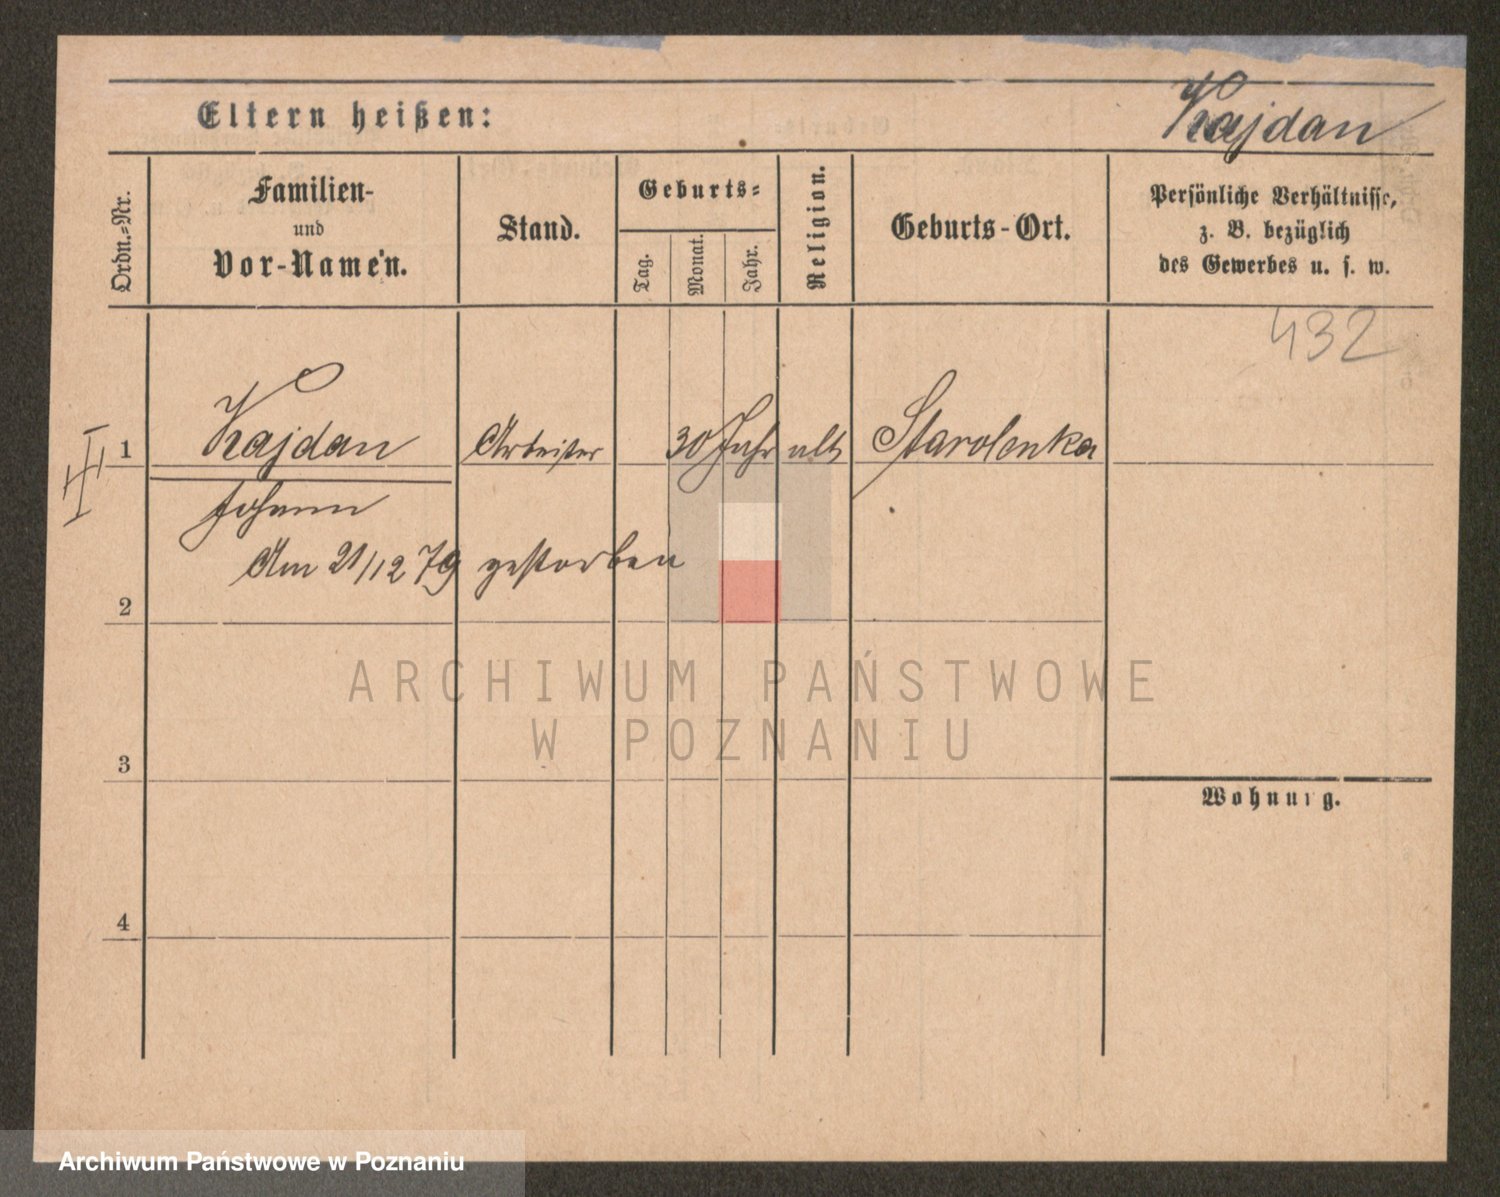 Eltern heißen:
Kajdan
Ordn.-Nr.
Familien-
und
Vor-Namen.
Stand.
Geburts-
Tag.
Monat.
Jahr.
Religion.
Geburts-Ort.
Persönliche Verhältnisse,
z. B. bezüglich
des Gewerbes u. s. w.
432
1 Kajdan Arbeiter 30 Jahr alt Starolenka
Johann
Am 21/12 79 gestorben
2
ARCHIWUM PAŃSTWOWE
W POZNANIU
3
Wohnung.
4
Archiwum Państwowe w Poznaniu